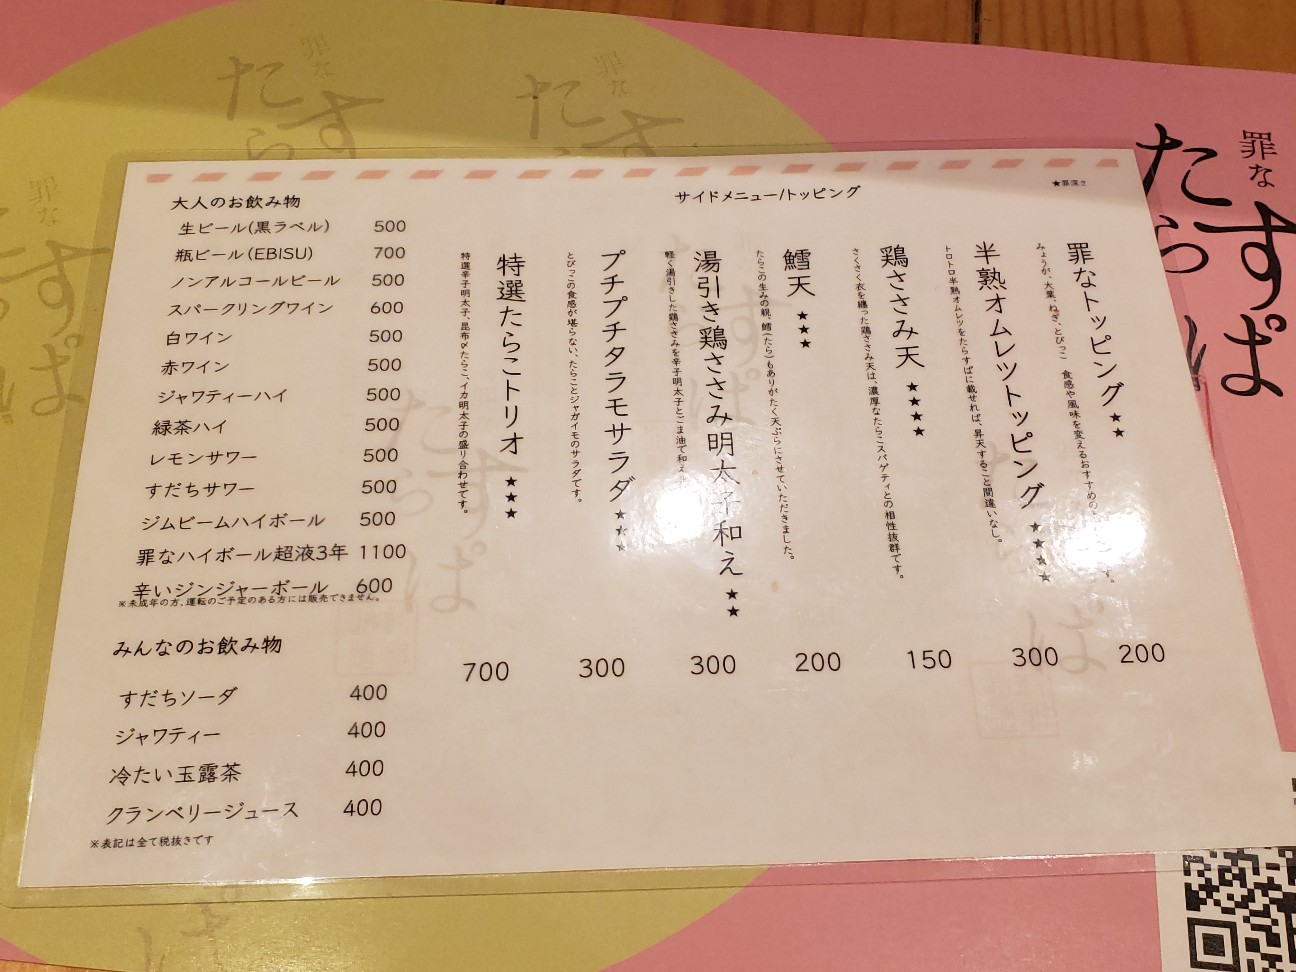 罪な
たらすぱ
大人のお飲み物
生ビール(黒ラベル) 500
瓶ビール(EBISU) 700
ノンアルコールビール 500
スパークリングワイン 600
白ワイン 500
赤ワイン 500
ジャワティーハイ 500
緑茶ハイ 500
レモンサワー 500
すだちサワー 500
ジムビームハイボール 500
罪なハイボール超液3年 1100
辛いジンジャーボール 600
※未成年の方、運転のご予定のある方には販売できません。
みんなのお飲み物
すだちソーダ 400
ジャワティー 400
冷たい玉露茶 400
クランベリージュース 400
※表記は全て税抜きです
サイドメニュー/トッピング
★罪深さ
罪なトッピング★★
みょうが、大葉、ねぎ、とびっこ 食感や風味を変えるおすすめの
200
半熟オムレツトッピング★★★★
トロトロ半熟オムレツをたらすぱに載せれば、昇天すること間違いなし。
300
鶏ささみ天★★★★
さくさく衣を纏った鶏ささみ天は、濃厚なたらこスパゲティとの相性抜群です。
150
鱈天★★★
たらこの生みの親、鱈(たら)もありがたく天ぷらにさせていただきました。
200
湯引き鶏ささみ明太子和え★★
軽く湯引きした鶏ささみを辛子明太子とごま油で和え
300
プチプチタラモサラダ★★★
とびっこの食感が堪らない、たらことジャガイモのサラダです。
300
特選たらこトリオ★★★
特選辛子明太子、昆布〆たらこ、イカ明太子の盛り合わせです。
700